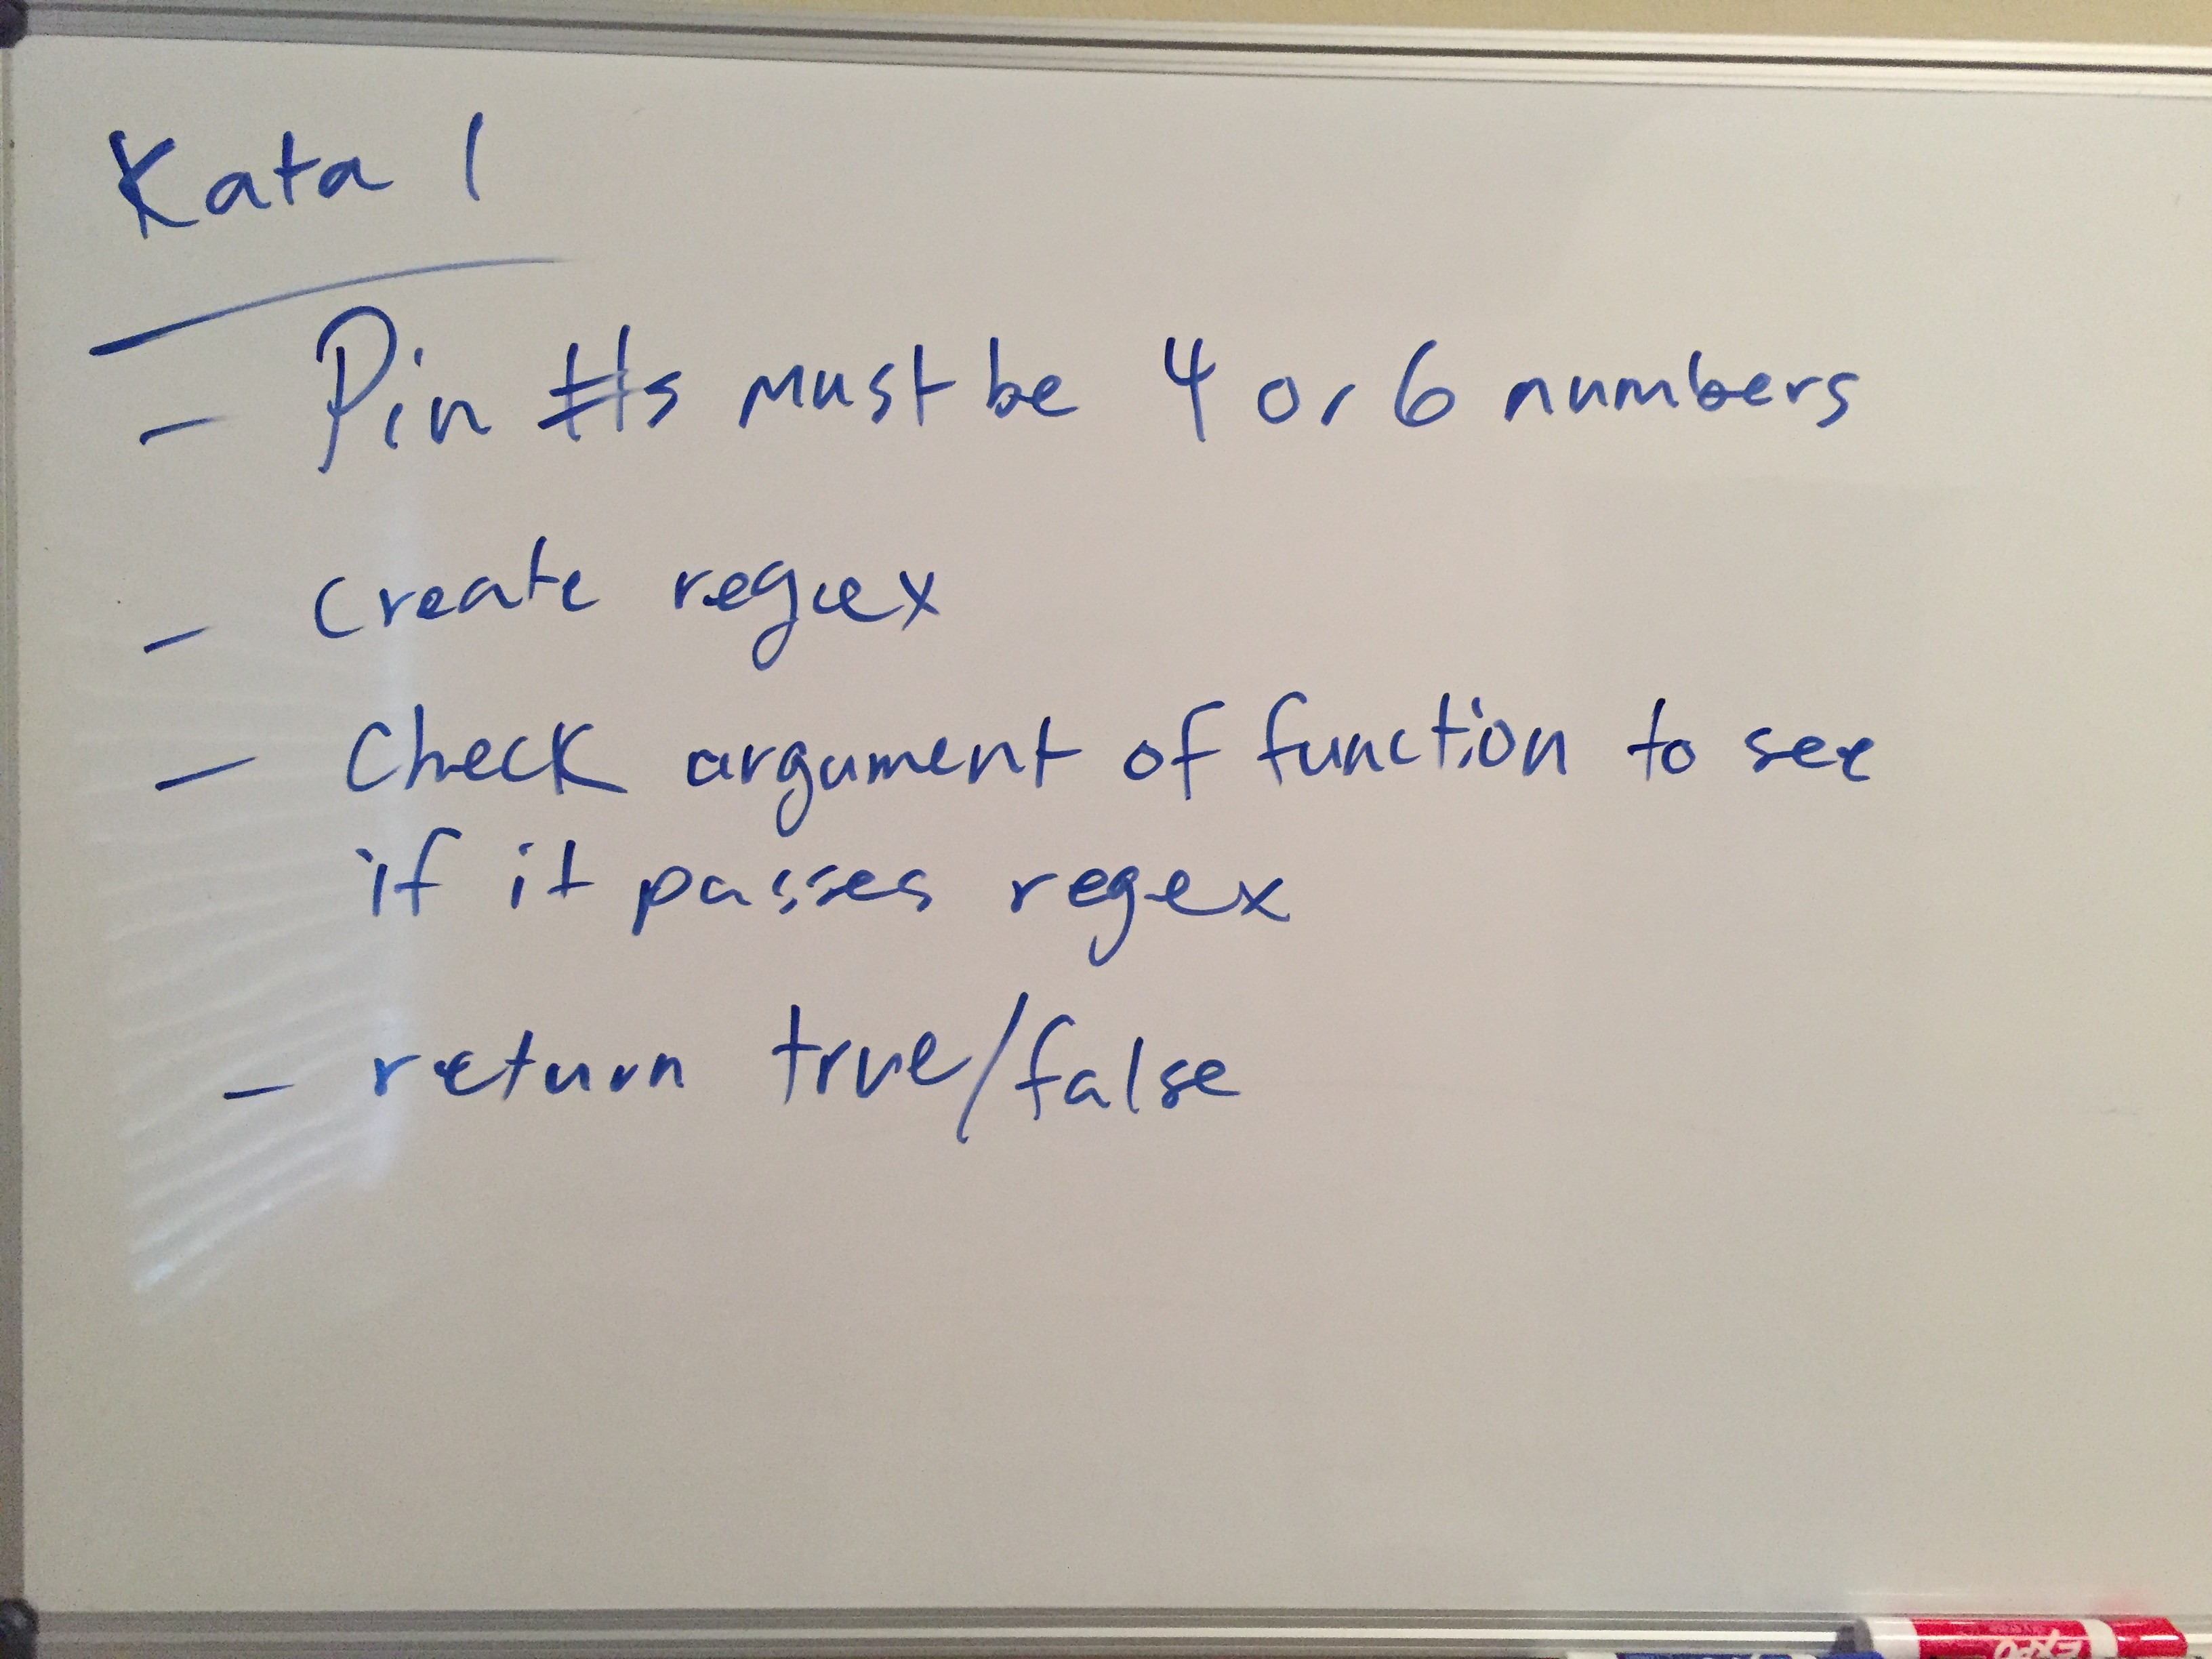 Kata 1
- Pin #s must be 4 or 6 numbers
- create regex
- Check argument of function to see
if it passes regex
- return true/false
EXPO